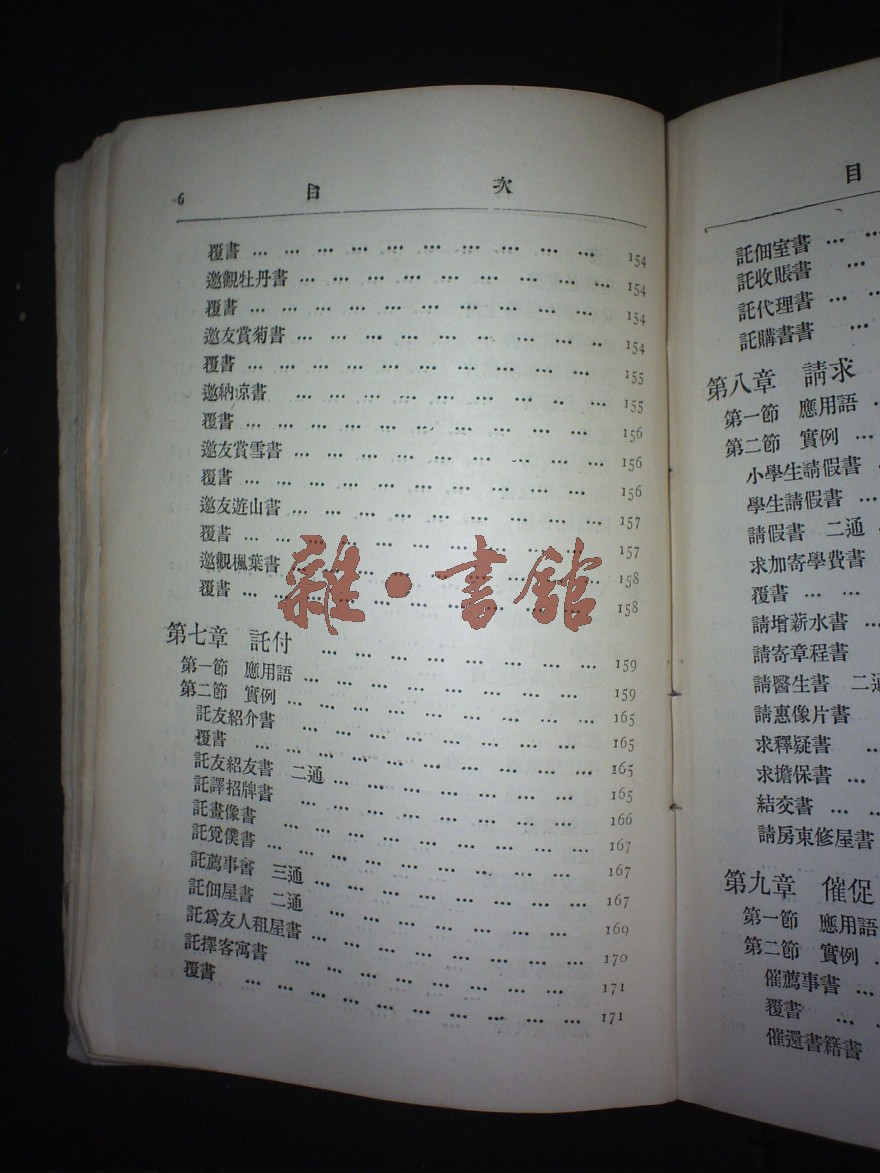 6 目 次
覆書 … … … … … … … … … … 154
邀觀牡丹書 … … … … … … … … 154
覆書 … … … … … … … … … … 154
邀友賞菊書 … … … … … … … … 154
覆書 … … … … … … … … … … 155
邀納凉書 … … … … … … … … 155
覆書 … … … … … … … … … … 156
邀友賞雪書 … … … … … … … … 156
覆書 … … … … … … … … … … 156
邀友遊山書 … … … … … … … … 157
覆書 … … … … … … … … … … 157
邀觀楓葉書 … … … … … … … … 158
覆書 … … … … … … … … … … 158
第七章 託付 … … … … … … … … 159
第一節 應用語 … … … … … … … … 159
第二節 實例 … … … … … … … … 165
託友紹介書 … … … … … … … … 165
覆書 … … … … … … … … … 165
託友紹友書 二通 … … … … … … … 165
託譯招牌書 … … … … … … … … 166
託畫像書 … … … … … … … … 167
託覓僕書 … … … … … … … … 167
託薦事書 三通 … … … … … … … 167
託佃屋書 二通 … … … … … … … 169
託爲友人租屋書 … … … … … … … 170
託擇客寓書 … … … … … … … … 171
覆書 … … … … … … … … … 171
雜·書館
目
託佃室書 … …
託收賬書 …
託代理書 … …
託購書書 …
第八章 請求
第一節 應用語
第二節 實例 …
小學生請假書
學生請假書 …
請假書 二通
求加寄學費書
覆書 … …
請增薪水書 …
請寄章程書
請醫生書 二通
請惠像片書
求釋疑書 …
求擔保書 …
結交書 … …
請房東修屋書
第九章 催促
第一節 應用語
第二節 實例 …
催薦事書 …
覆書 … …
催還書籍書